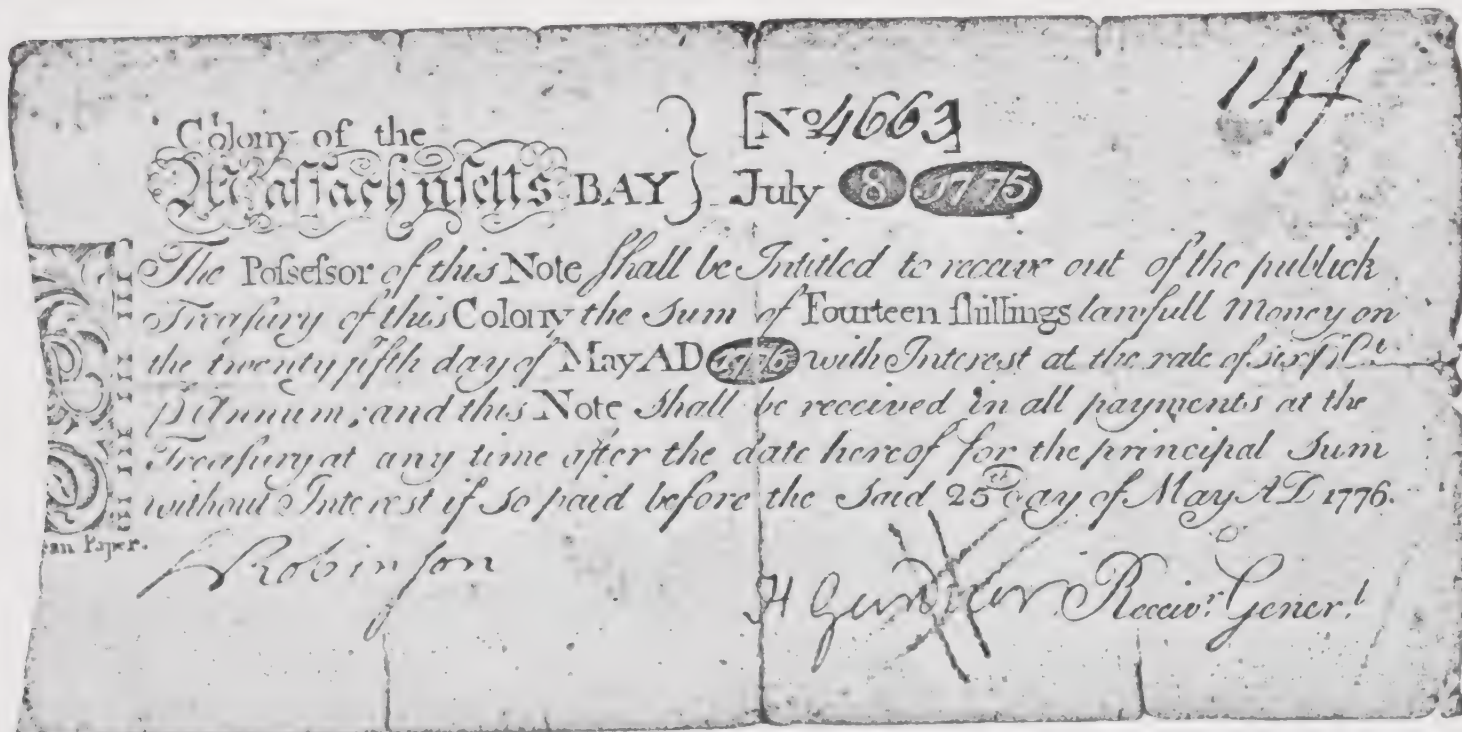 14/
Colony of the [No 4663]
Maſſachuſetts BAY } July 8 1775
The Poſseſsor of this Note ſhall be Intitled to receive out of the publick
Treaſury of this Colony the Sum of Fourteen ſhillings lawfull Money on
the twenty fifth day of May AD 1776 with Interest at the rate of six
Annum; and this Note Shall be received in all payments at the
Treaſury at any time after the date hereof for the principal Sum
without Interest if so paid before the Said 25th day of May AD 1776.
an Paper.
Robinson
H Gardner Receivr. Generl.